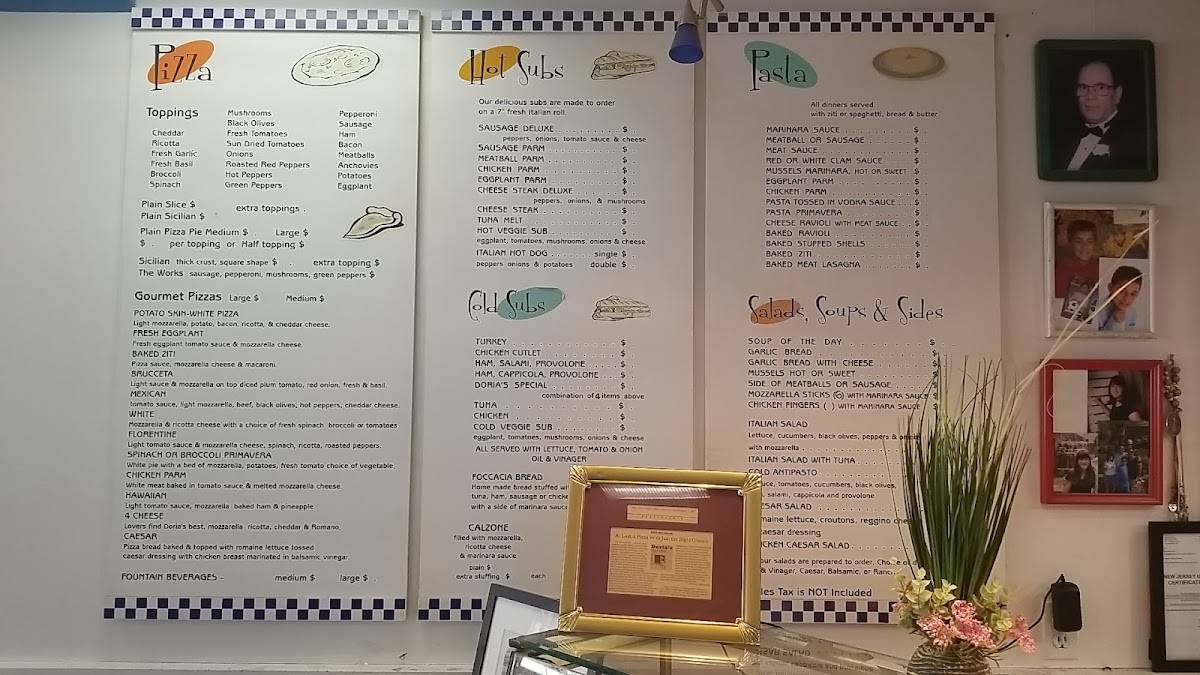 Pizza
Toppings
Cheddar
Ricotta
Fresh Garlic
Fresh Basil
Broccoli
Spinach
Mushrooms
Black Olives
Fresh Tomatoes
Sun Dried Tomatoes
Onions
Roasted Red Peppers
Hot Peppers
Green Peppers
Pepperoni
Sausage
Ham
Bacon
Meatballs
Anchovies
Potatoes
Eggplant
Plain Slice $ extra toppings .
Plain Sicilian $
Plain Pizza Pie Medium $ . Large $
$ . per topping or Half topping $
Sicilian thick crust, square shape $ . extra topping $
The Works sausage, pepperoni, mushrooms, green peppers $
Gourmet Pizzas Large $ Medium $
POTATO SKIN-WHITE PIZZA
Light mozzarella, potato, bacon, ricotta, & cheddar cheese.
FRESH EGGPLANT
Fresh eggplant tomato sauce & mozzarella cheese.
BAKED ZITI
Pizza sauce, mozzarella cheese & macaroni.
BRUCCETA
Light sauce & mozzarella on top diced plum tomato, red onion, fresh & basil.
MEXICAN
tomato sauce, light mozzarella, beef, black olives, hot peppers, cheddar cheese.
WHITE
Mozzarella & ricotta cheese with a choice of fresh spinach broccoli or tomatoes
FLORENTINE
Light tomato sauce & mozzarella cheese, spinach, ricotta, roasted peppers.
SPINACH OR BROCCOLI PRIMAVERA
White pie with a bed of mozzarella, potatoes, fresh tomato choice of vegetable.
CHICKEN PARM
White meat baked in tomato sauce & melted mozzarella cheese.
HAWAIIAN
Light tomato sauce, mozzarella baked ham & pineapple
4 CHEESE
Lovers find Doria's best, mozzarella, ricotta, cheddar & Romano.
CAESAR
Pizza bread baked & topped with romaine lettuce tossed
caesar dressing with chicken breast marinated in balsamic vinegar.
FOUNTAIN BEVERAGES - medium $ large $ .
Hot Subs
Our delicious subs are made to order
on a 7" fresh Italian roll.
SAUSAGE DELUXE . . . . . . . . . . $ .
peppers, onions, tomato sauce & cheese
SAUSAGE PARM . . . . . . . . . . . $
MEATBALL PARM . . . . . . . . . . . $
CHICKEN PARM . . . . . . . . . . . $
EGGPLANT PARM . . . . . . . . . . . $
CHEESE STEAK DELUXE . . . . . . . $
peppers, onions, & mushrooms
CHEESE STEAK . . . . . . . . . . . $
TUNA MELT . . . . . . . . . . . $
HOT VEGGIE SUB . . . . . . . . . . . $
eggplant, tomatoes, mushrooms, onions & cheese
ITALIAN HOT DOG . . . . . . single $ .
peppers onions & potatoes double $ .
Cold Subs
TURKEY . . . . . . . . . . . $
CHICKEN CUTLET . . . . . . . . . . $
HAM, SALAMI, PROVOLONE . . . . $
HAM, CAPPICOLA, PROVOLONE . . . $
DORIA'S SPECIAL . . . . . . . . . $
combination of 4 items above
TUNA . . . . . . . . . . . $
CHICKEN . . . . . . . . . . . $
COLD VEGGIE SUB . . . . . . . . . $
eggplant, tomatoes, mushrooms, onions & cheese
ALL SERVED WITH LETTUCE, TOMATO & ONION
OIL & VINAGER
FOCCACIA BREAD
Home made bread stuffed wi
tuna, ham, sausage or chicke
with a side of marinara sauce
CALZONE
filled with mozzarella,
ricotta cheese
& marinara sauce
plain $ .
extra stuffing $ each
Pasta
All dinners served
with ziti or spaghetti, bread & butter
MARINARA SAUCE . . . . . . . . . . $
MEATBALL OR SAUSAGE . . . . . . . $
MEAT SAUCE . . . . . . . . . . . $
RED OR WHITE CLAM SAUCE . . . . . $
MUSSELS MARINARA, HOT OR SWEET $
EGGPLANT PARM . . . . . . . . . . $
CHICKEN PARM . . . . . . . . . . . $
PASTA TOSSED IN VODKA SAUCE . . . $
PASTA PRIMAVERA . . . . . . . . . $
CHEESE RAVIOLI WITH MEAT SAUCE . . $
BAKED RAVIOLI . . . . . . . . . . $
BAKED STUFFED SHELLS . . . . . . . $
BAKED ZITI . . . . . . . . . . . $
BAKED MEAT LASAGNA . . . . . . . . $
Salads, Soups & Sides
SOUP OF THE DAY . . . . . . . . . $
GARLIC BREAD . . . . . . . . . . . $
GARLIC BREAD WITH CHEESE . . . . . $
MUSSELS HOT OR SWEET . . . . . . . $
SIDE OF MEATBALLS OR SAUSAGE . . . $
MOZZARELLA STICKS (6) WITH MARINARA SAUCE $
CHICKEN FINGERS ( ) WITH MARINARA SAUCE $
ITALIAN SALAD
Lettuce, cucumbers, black olives, peppers &
with mozzarella . . . . . . . . .
ITALIAN SALAD WITH TUNA . . . .
COLD ANTIPASTO
tomatoes, cucumbers, black olives,
salami, cappicola and provolone
CAESAR SALAD . . . . . . .
romaine lettuce, croutons, reggino
caesar dressing
CHICKEN CAESAR SALAD . . . . . . .
our salads are prepared to order, Choice of
& Vinager, Caesar, Balsamic, or Ranch
Sales Tax is NOT Included
At Last, a Pizza With Just the Right Crunch
Doria's
NEW JERSEY
CERTIFIC